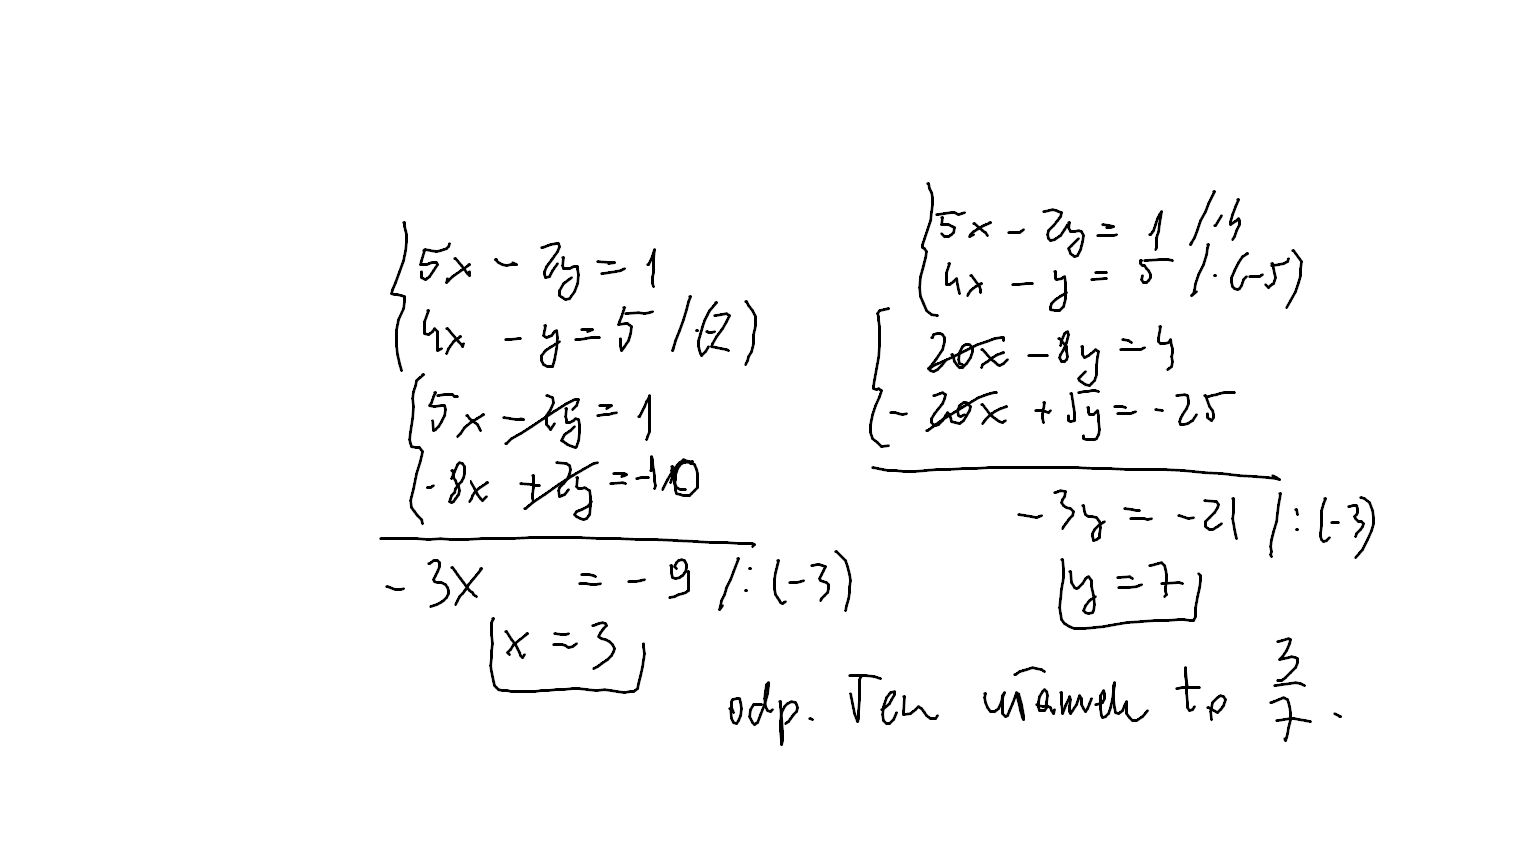 5x - 2y = 1
4x - y = 5 /·(-2)
5x - 2y = 1
-8x + 2y = -10
-3x = -9 /:(-3)
x = 3
5x - 2y = 1 /·4
4x - y = 5 /·(-5)
20x - 8y = 4
-20x + 5y = -25
-3y = -21 /:(-3)
y = 7
odp. Ten ułamek to 3/7.